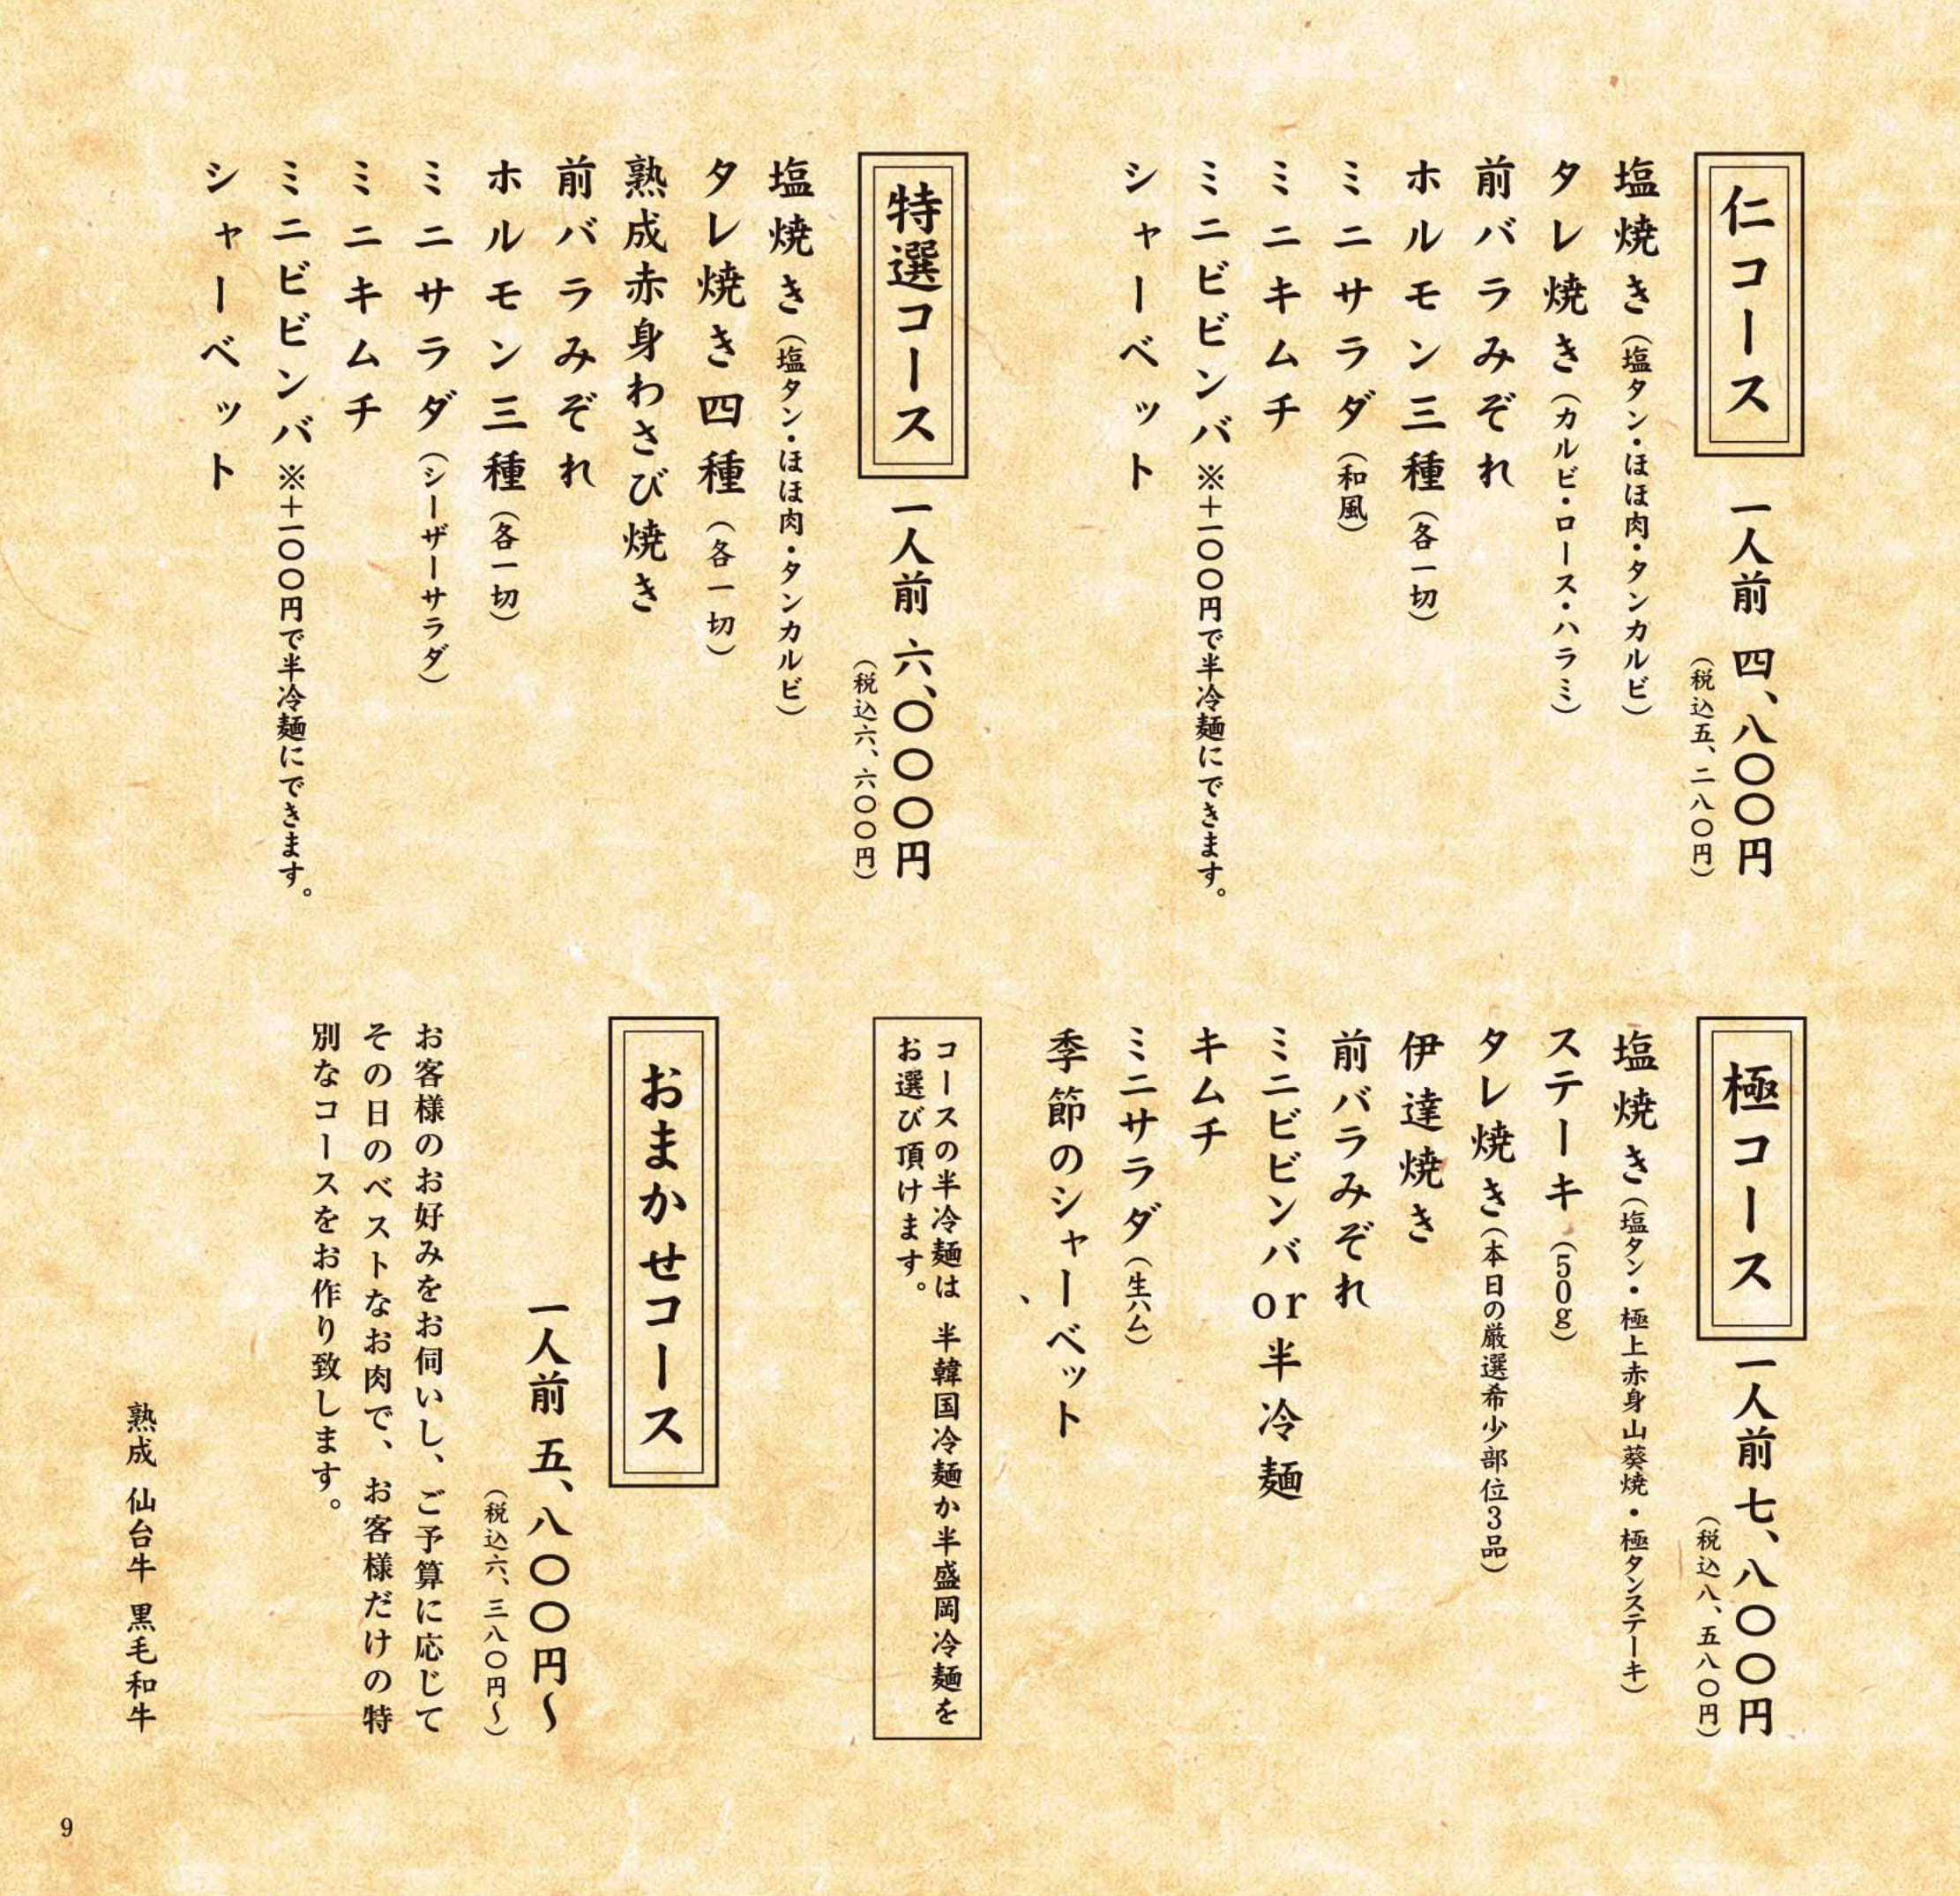 仁コース
一人前 四、八〇〇円
（税込五、二八〇円）
塩焼き（塩タン・ほほ肉・タンカルビ）
タレ焼き（カルビ・ロース・ハラミ）
前バラみぞれ
ホルモン三種（各一切）
ミニサラダ（和風）
ミニキムチ
ミニビビンバ ※＋一〇〇円で半冷麺にできます。
シャーベット
特選コース
一人前 六、〇〇〇円
（税込六、六〇〇円）
塩焼き（塩タン・ほほ肉・タンカルビ）
タレ焼き四種（各一切）
熟成赤身わさび焼き
前バラみぞれ
ホルモン三種（各一切）
ミニサラダ（シーザーサラダ）
ミニキムチ
ミニビビンバ ※＋一〇〇円で半冷麺にできます。
シャーベット
極コース
一人前 七、八〇〇円
（税込八、五八〇円）
塩焼き（塩タン・極上赤身山葵焼・極タンステーキ）
ステーキ（50g）
タレ焼き（本日の厳選希少部位3品）
伊達焼き
前バラみぞれ
ミニビビンバor半冷麺
キムチ
ミニサラダ（生ハム）
季節のシャーベット
、
コースの半冷麺は 半韓国冷麺か半盛岡冷麺を
お選び頂けます。
おまかせコース
一人前 五、八〇〇円〜
（税込六、三八〇円〜）
お客様のお好みをお伺いし、ご予算に応じて
その日のベストなお肉で、お客様だけの特
別なコースをお作り致します。
熟成 仙台牛 黒毛和牛
9